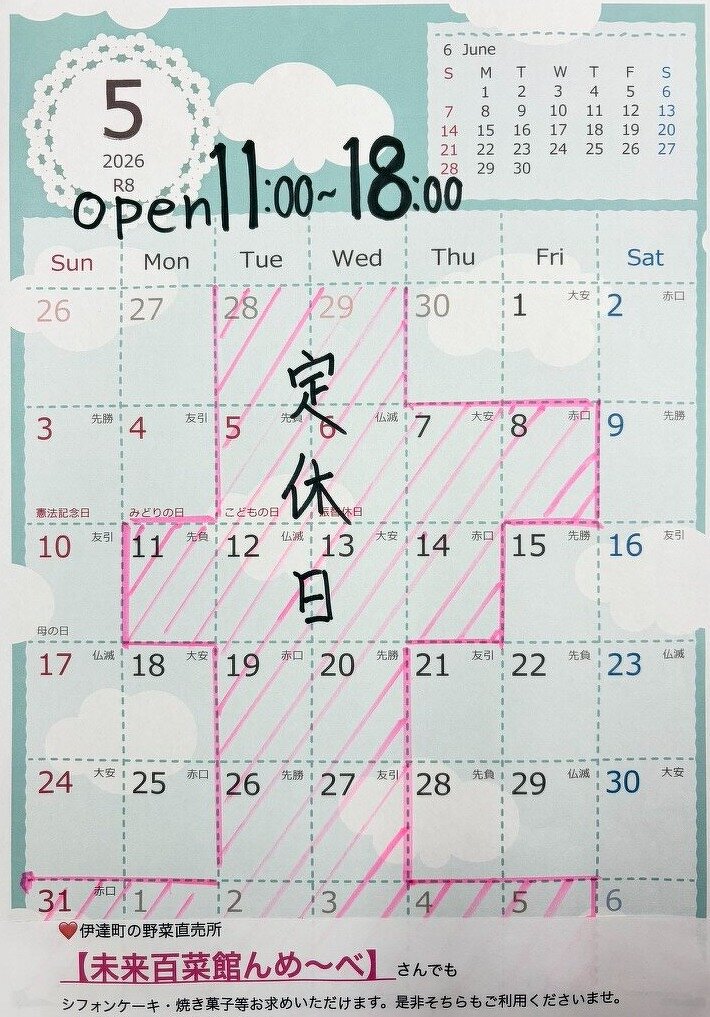 5
2026
R8
6 June
S M T W T F S
1 2 3 4 5 6
7 8 9 10 11 12 13
14 15 16 17 18 19 20
21 22 23 24 25 26 27
28 29 30
open 11:00~18:00
Sun Mon Tue Wed Thu Fri Sat
26 27 28 29 30 1 大安 2 赤口
定休日
3 先勝 4 友引 5 先負 6 仏滅 7 大安 8 赤口 9 先勝
憲法記念日 みどりの日 こどもの日 振替休日
10 友引 11 先負 12 仏滅 13 大安 14 赤口 15 先勝 16 友引
母の日
17 仏滅 18 大安 19 赤口 20 先勝 21 友引 22 先負 23 仏滅
24 大安 25 赤口 26 先勝 27 友引 28 先負 29 仏滅 30 大安
31 赤口 1 2 3 4 5 6
❤伊達町の野菜直売所
【未来百菜館んめ〜べ】さんでも
シフォンケーキ・焼き菓子等お求めいただけます。是非そちらもご利用くださいませ。